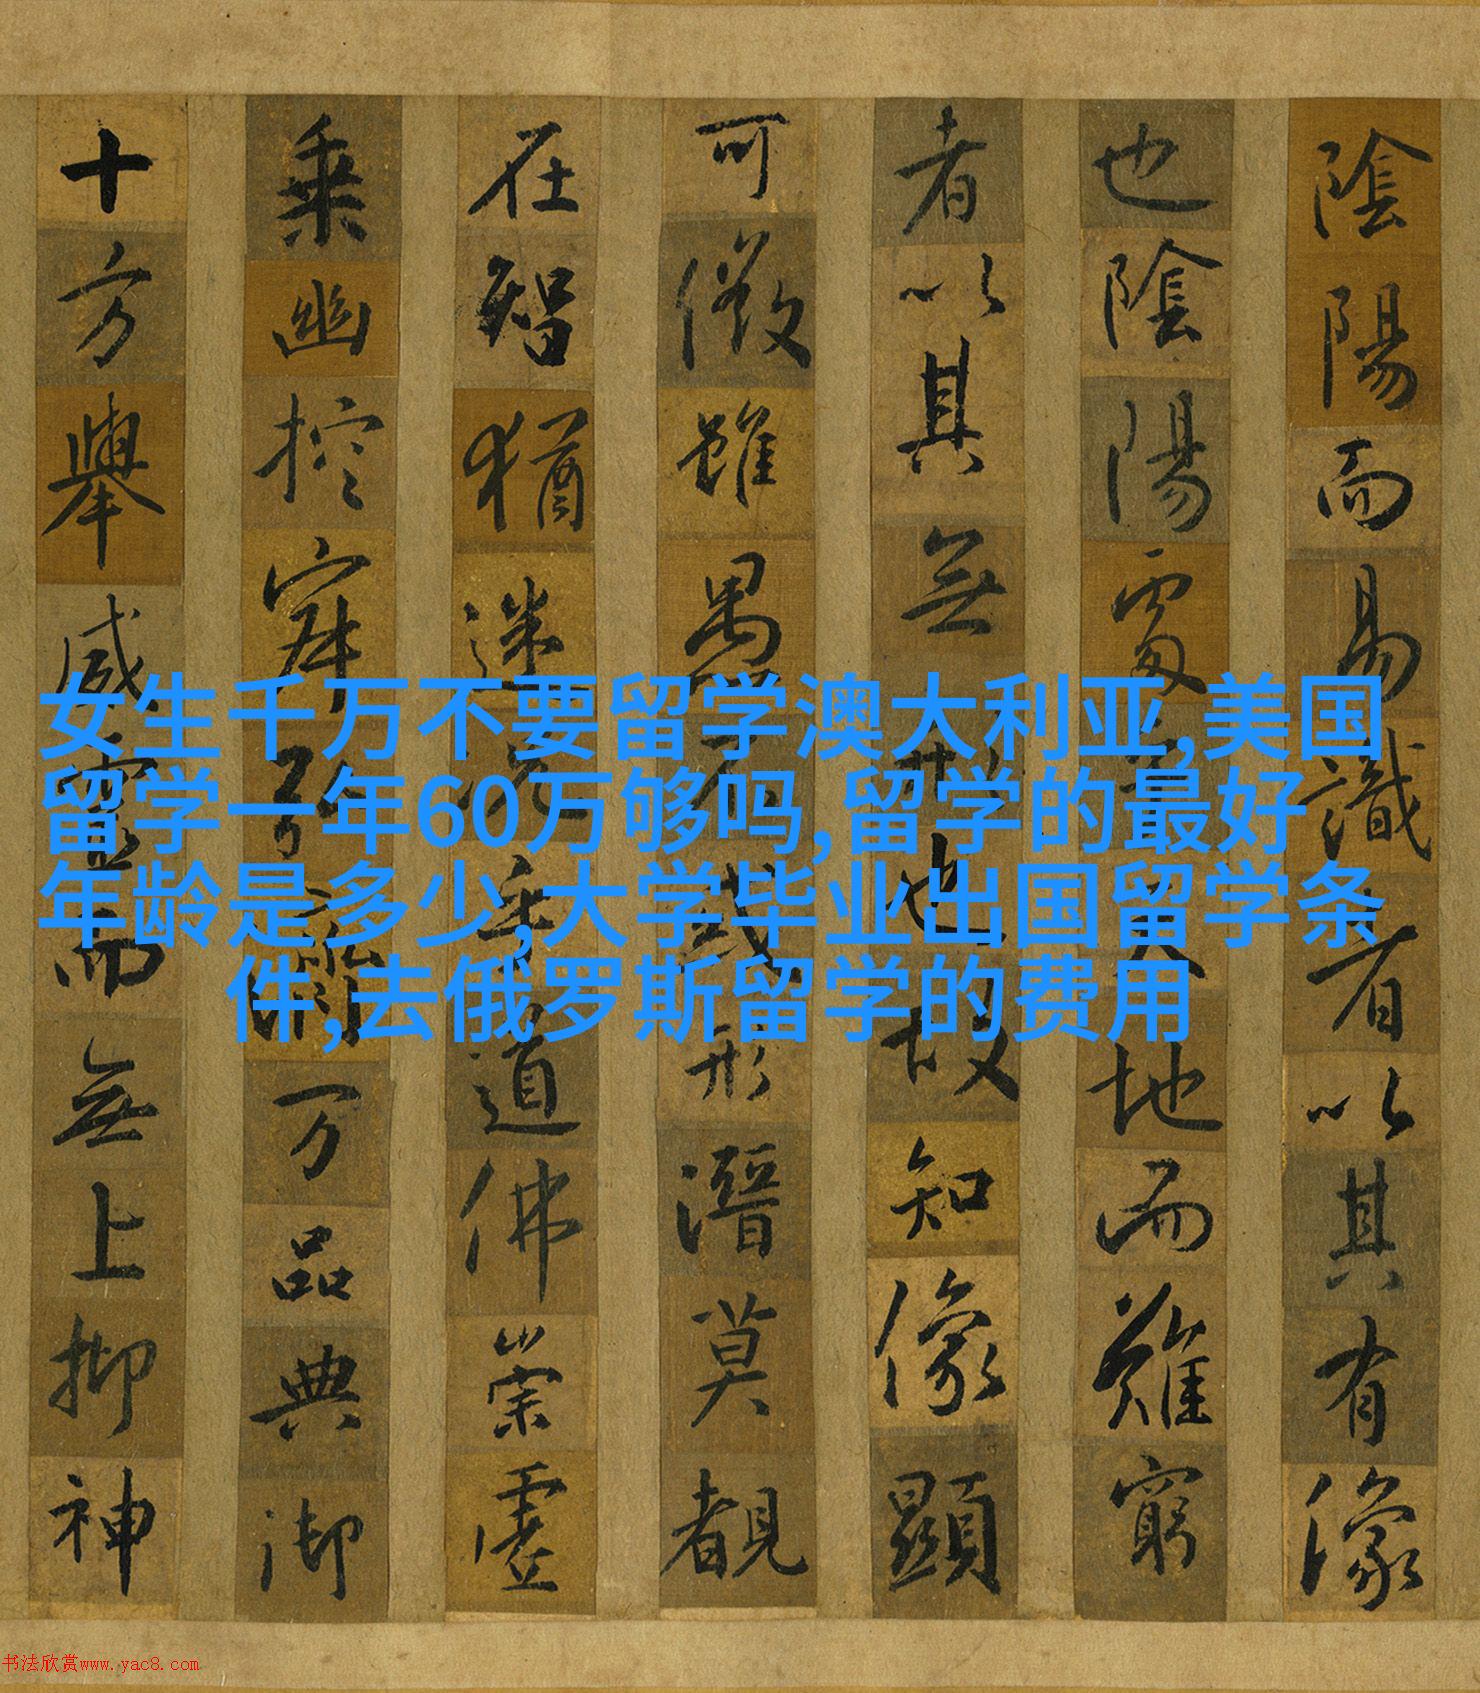 陰陽而易識者以其有像
也陰陽處乎天地而難窮
者以其無形也故知像顯
可徵雖愚不惑形潛莫覩
在智猶迷況乎道佛崇虛
乗幽控寂弘濟万品典御
十方舉威靈而無上抑神
女生千万不要留学澳大利亚,美国
留学一年60万够吗,留学的最好
年龄是多少,大学毕业出国留学条
件,去俄罗斯留学的费用
书法欣赏www.yac8.com